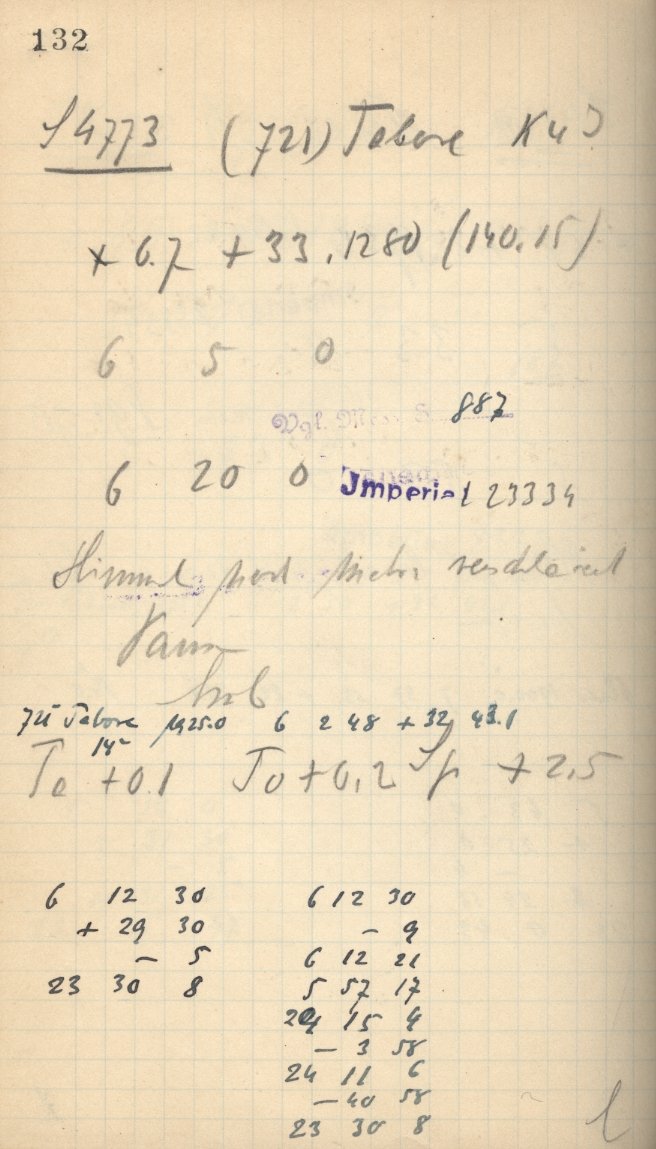 132
S 4773 (721) Tabora K u J
+ 6.7 + 33.1280 (140.15)
6 5 0
Vgl. 887
6 20 0 Imperial 23334
Himmel verschleiert
721 Tabora 1925.0 6 2 48 + 32 43.1
14m
Te + 0.1 To + 0,2 Sp + 2,5
6 12 30
+ 29 30
- 5
23 30 8
6 12 30
- 9
6 12 21
5 57 17
24 15 4
- 3 58
24 11 6
- 40 58
23 30 8